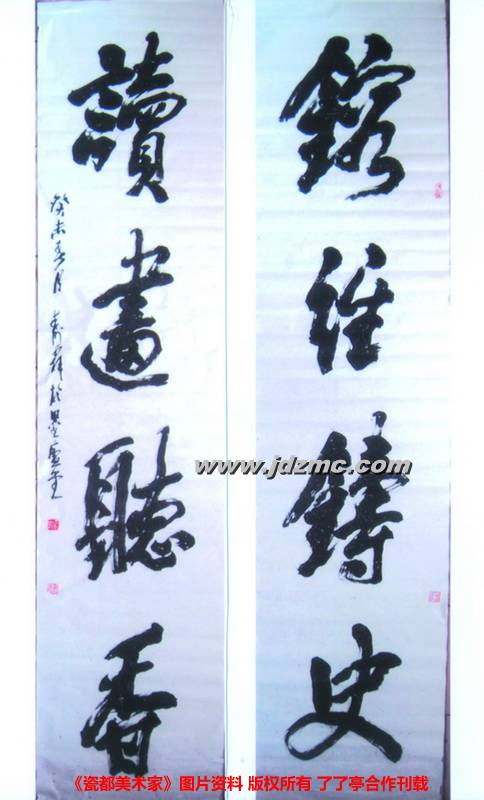 鎔經鑄史
讀畫聽香
癸未春月
www.jdzmc.com
《瓷都美术家》图片资料 版权所有 了了亭合作刊载